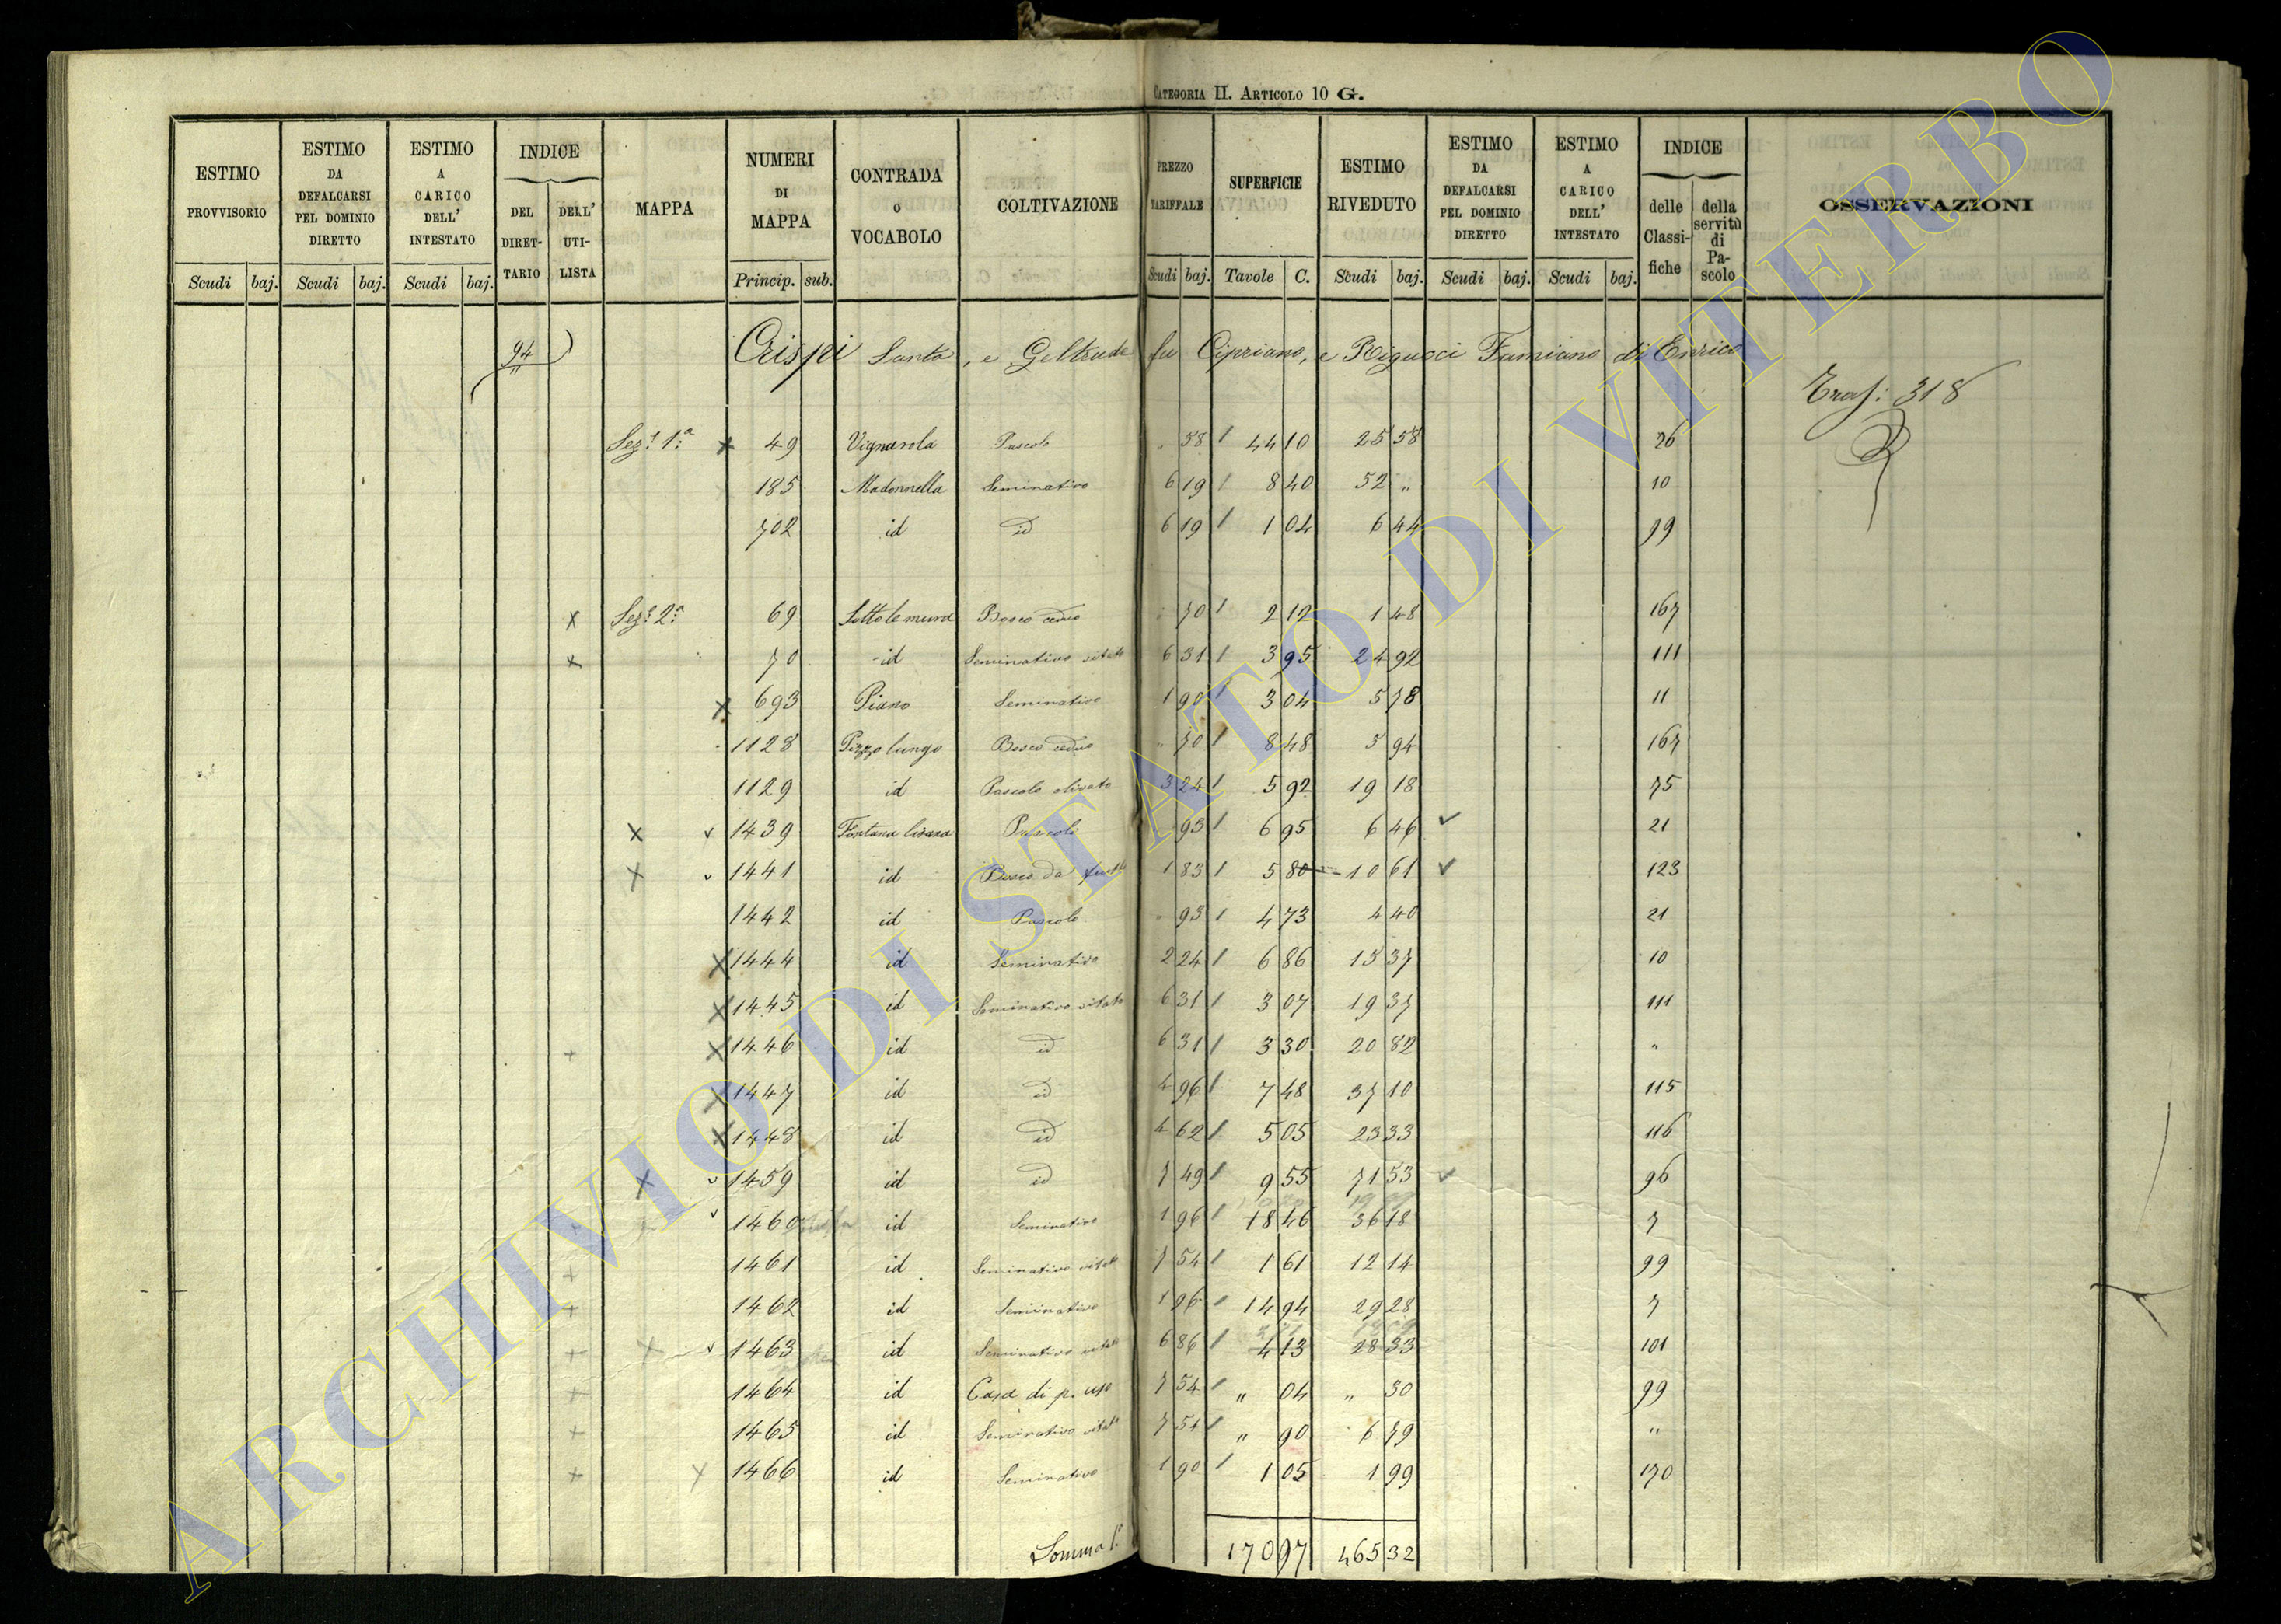 CATEGORIA II. ARTICOLO 10 G.
ESTIMO PROVVISORIO | ESTIMO DA DEFALCARSI PEL DOMINIO DIRETTO | ESTIMO A CARICO DELL' INTESTATO | INDICE DEL DIRET-TARIO | DELL' UTI-LISTA | MAPPA | NUMERI DI MAPPA | CONTRADA O VOCABOLO | COLTIVAZIONE | PREZZO TARIFFALE | SUPERFICIE | ESTIMO RIVEDUTO | ESTIMO DA DEFALCARSI PEL DOMINIO DIRETTO | ESTIMO A CARICO DELL' INTESTATO | INDICE delle Classi-fiche | della servitù di Pa-scolo | OSSERVAZIONI
Scudi | baj. | Scudi | baj. | Scudi | baj. | Princip. | sub. | Scudi | baj. | Tavole | C. | Scudi | baj. | Scudi | baj. | Scudi | baj.
94 Crispi Santa, e Geltrude fu Cipriano, e Rigucci Famiano di Enrico
Trasf: 318
Sez: 1ª x 49 Vignarola Pascolo " 58 44 10 25 58 26
185 Madonnella Seminativo 6 19 8 40 52 " 10
702 id id 6 19 1 04 6 44 99
x Sez: 2ª 69 Sotto le mura Bosco ceduo " 70 2 12 1 48 167
x 70 id Seminativo vitato 6 31 3 95 24 92 111
x 693 Piano Seminativo 1 90 3 04 5 78 11
1128 Pizzo lungo Bosco ceduo " 70 8 48 5 94 167
1129 id Pascolo olivato 3 24 5 92 19 18 75
x v 1439 Fontana lisana Pascolo 93 6 95 6 46 v 21
x v 1441 id Bosco da frutto 1 83 5 80 10 61 v 123
1442 id Pascolo " 93 4 73 4 40 21
x 1444 id Seminativo 2 24 6 86 15 37 10
x 1445 id Seminativo vitato 6 31 3 07 19 37 111
+ x 1446 id id 6 31 3 30 20 82 "
x 1447 id id 4 96 7 48 37 10 115
x 1448 id id 4 62 5 05 23 33 116
x v 1459 id id 7 49 9 55 71 53 v 96
v 1460 id Seminativo 1 96 18 46 36 18 7
+ 1461 id Seminativo vitato 7 54 1 61 12 14 99
+ 1462 id Seminativo 1 96 14 94 29 28 7
+ x v 1463 id Seminativo vitato 6 86 4 13 28 33 101
+ 1464 id Casa di p. uso 7 54 " 04 " 30 99
+ 1465 id Seminativo vitato 7 54 " 90 6 79 "
+ x 1466 id Seminativo 1 90 1 05 1 99 170
Somma 170 97 465 32
ARCHIVIO DI STATO DI VITERBO